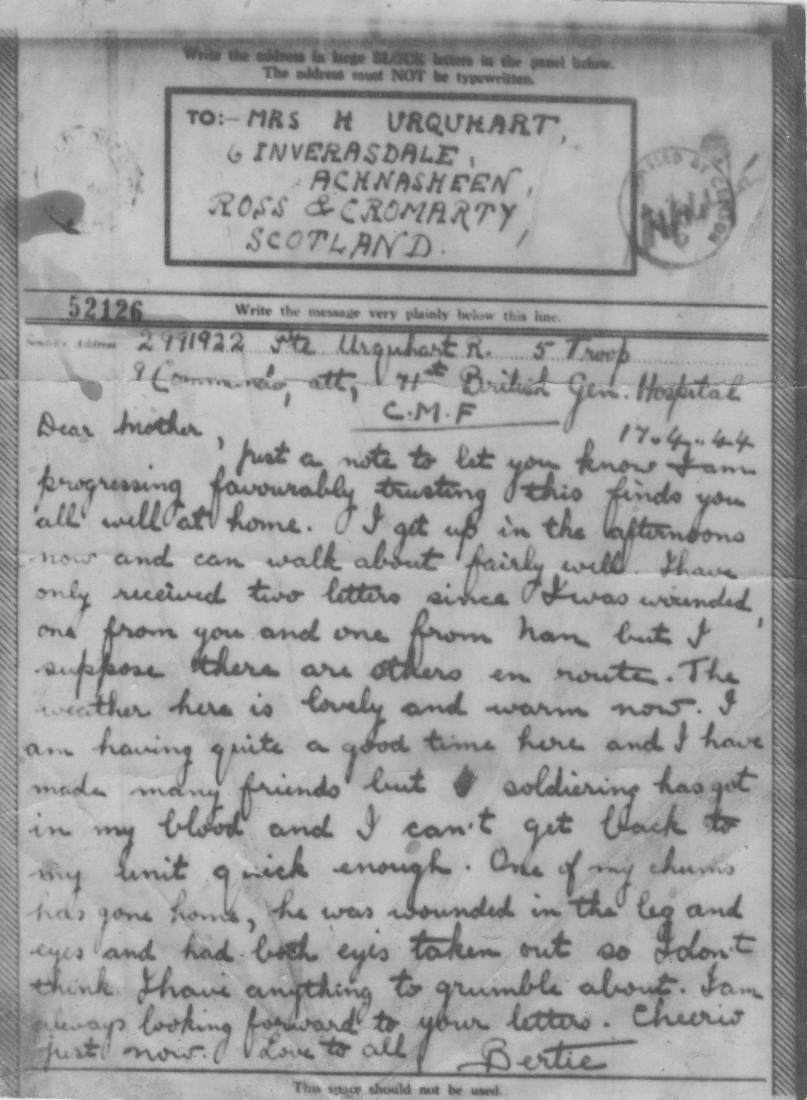 Write the address in large BLOCK letters in the panel below.
The address must NOT be typewritten.
TO:- MRS H URQUHART,
6 INVERASDALE,
ACHNASHEEN,
ROSS & CROMARTY,
SCOTLAND.
PASSED BY CENSOR
52126
Write the message very plainly below this line.
Sender's Address 2991922 Pte Urquhart R. 5 Troop
9 Commando, att, 71st British Gen. Hospital
C.M.F
17.4.44
Dear Mother,
Just a note to let you know I am
progressing favourably trusting this finds you
all well at home. I get up in the afternoons
now and can walk about fairly well. I have
only received two letters since I was wounded,
one from you and one from Nan but I
suppose there are others en route. The
weather here is lovely and warm now. I
am having quite a good time here and I have
made many friends but soldiering has got
in my blood and I can't get back to
my unit quick enough. One of my chums
has gone home, he was wounded in the leg and
eyes and had both eyes taken out so I don't
think I have anything to grumble about. I am
always looking forward to your letters. Cheerio
just now. Love to all
Bertie
This space should not be used.